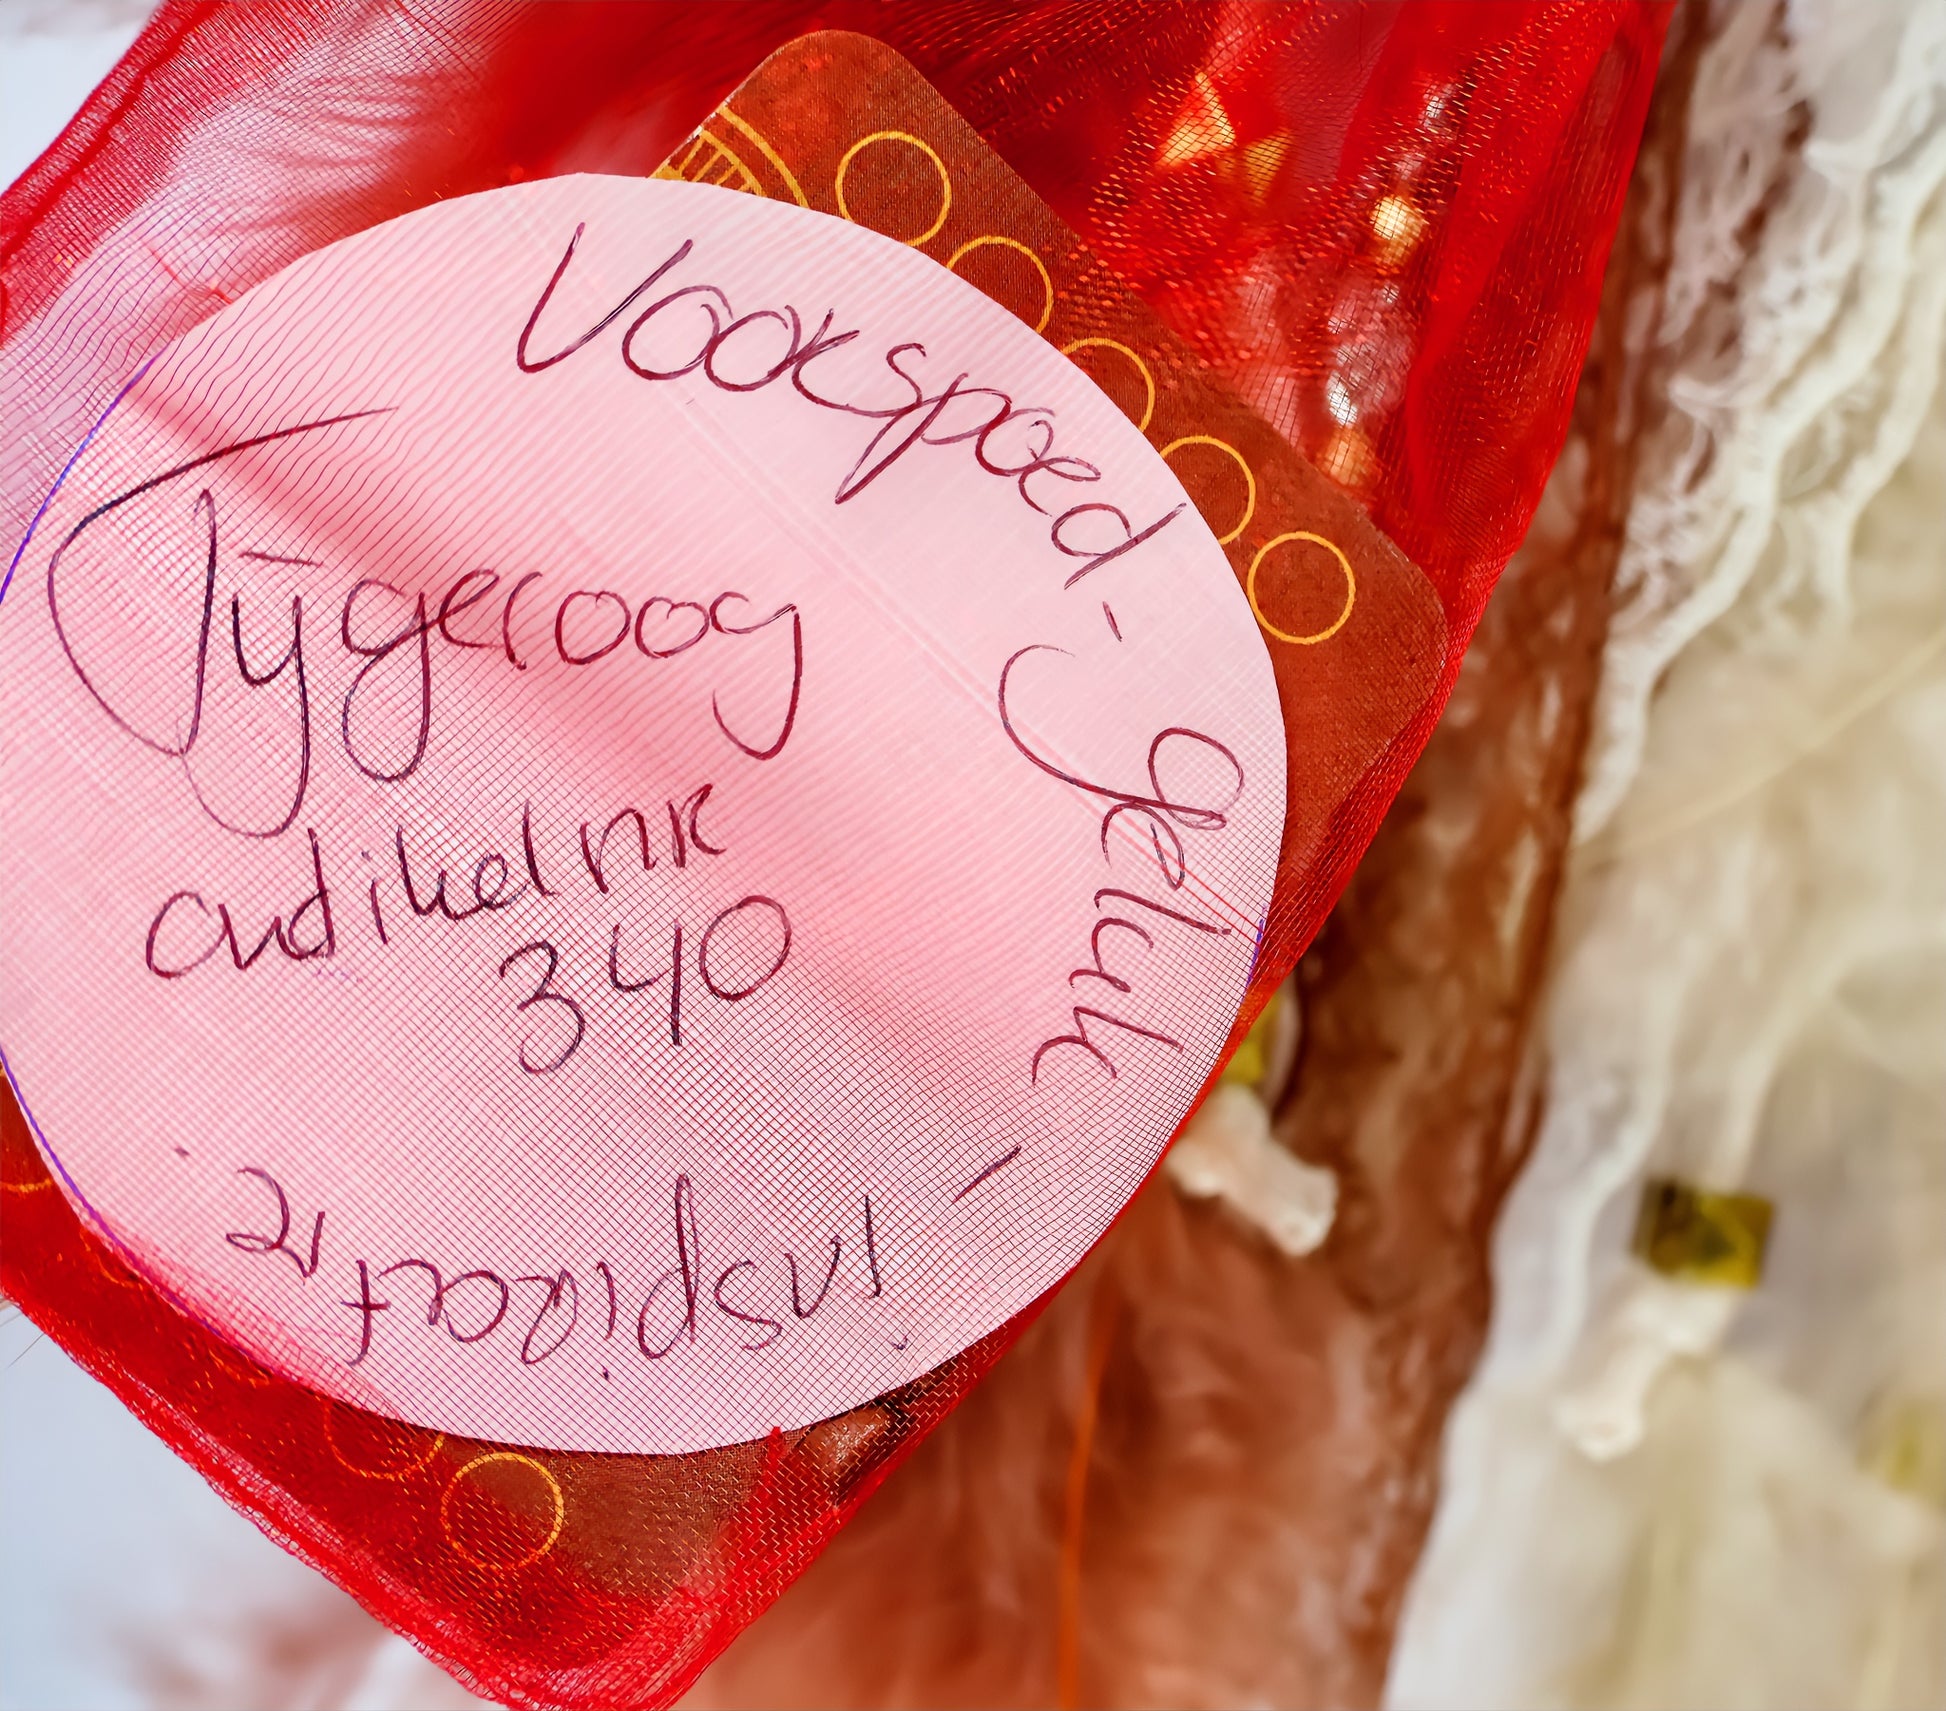 Voorspoed -
geluk
- inspiratie
Tijgeroog
artikel nr
340